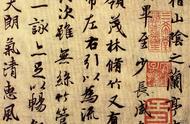 稽山陰之蘭亭
畢至少長
領茂林脩竹又有
帶左右引以為流
次雖無絲竹管
一詠亦足以暢
天朗氣清惠風